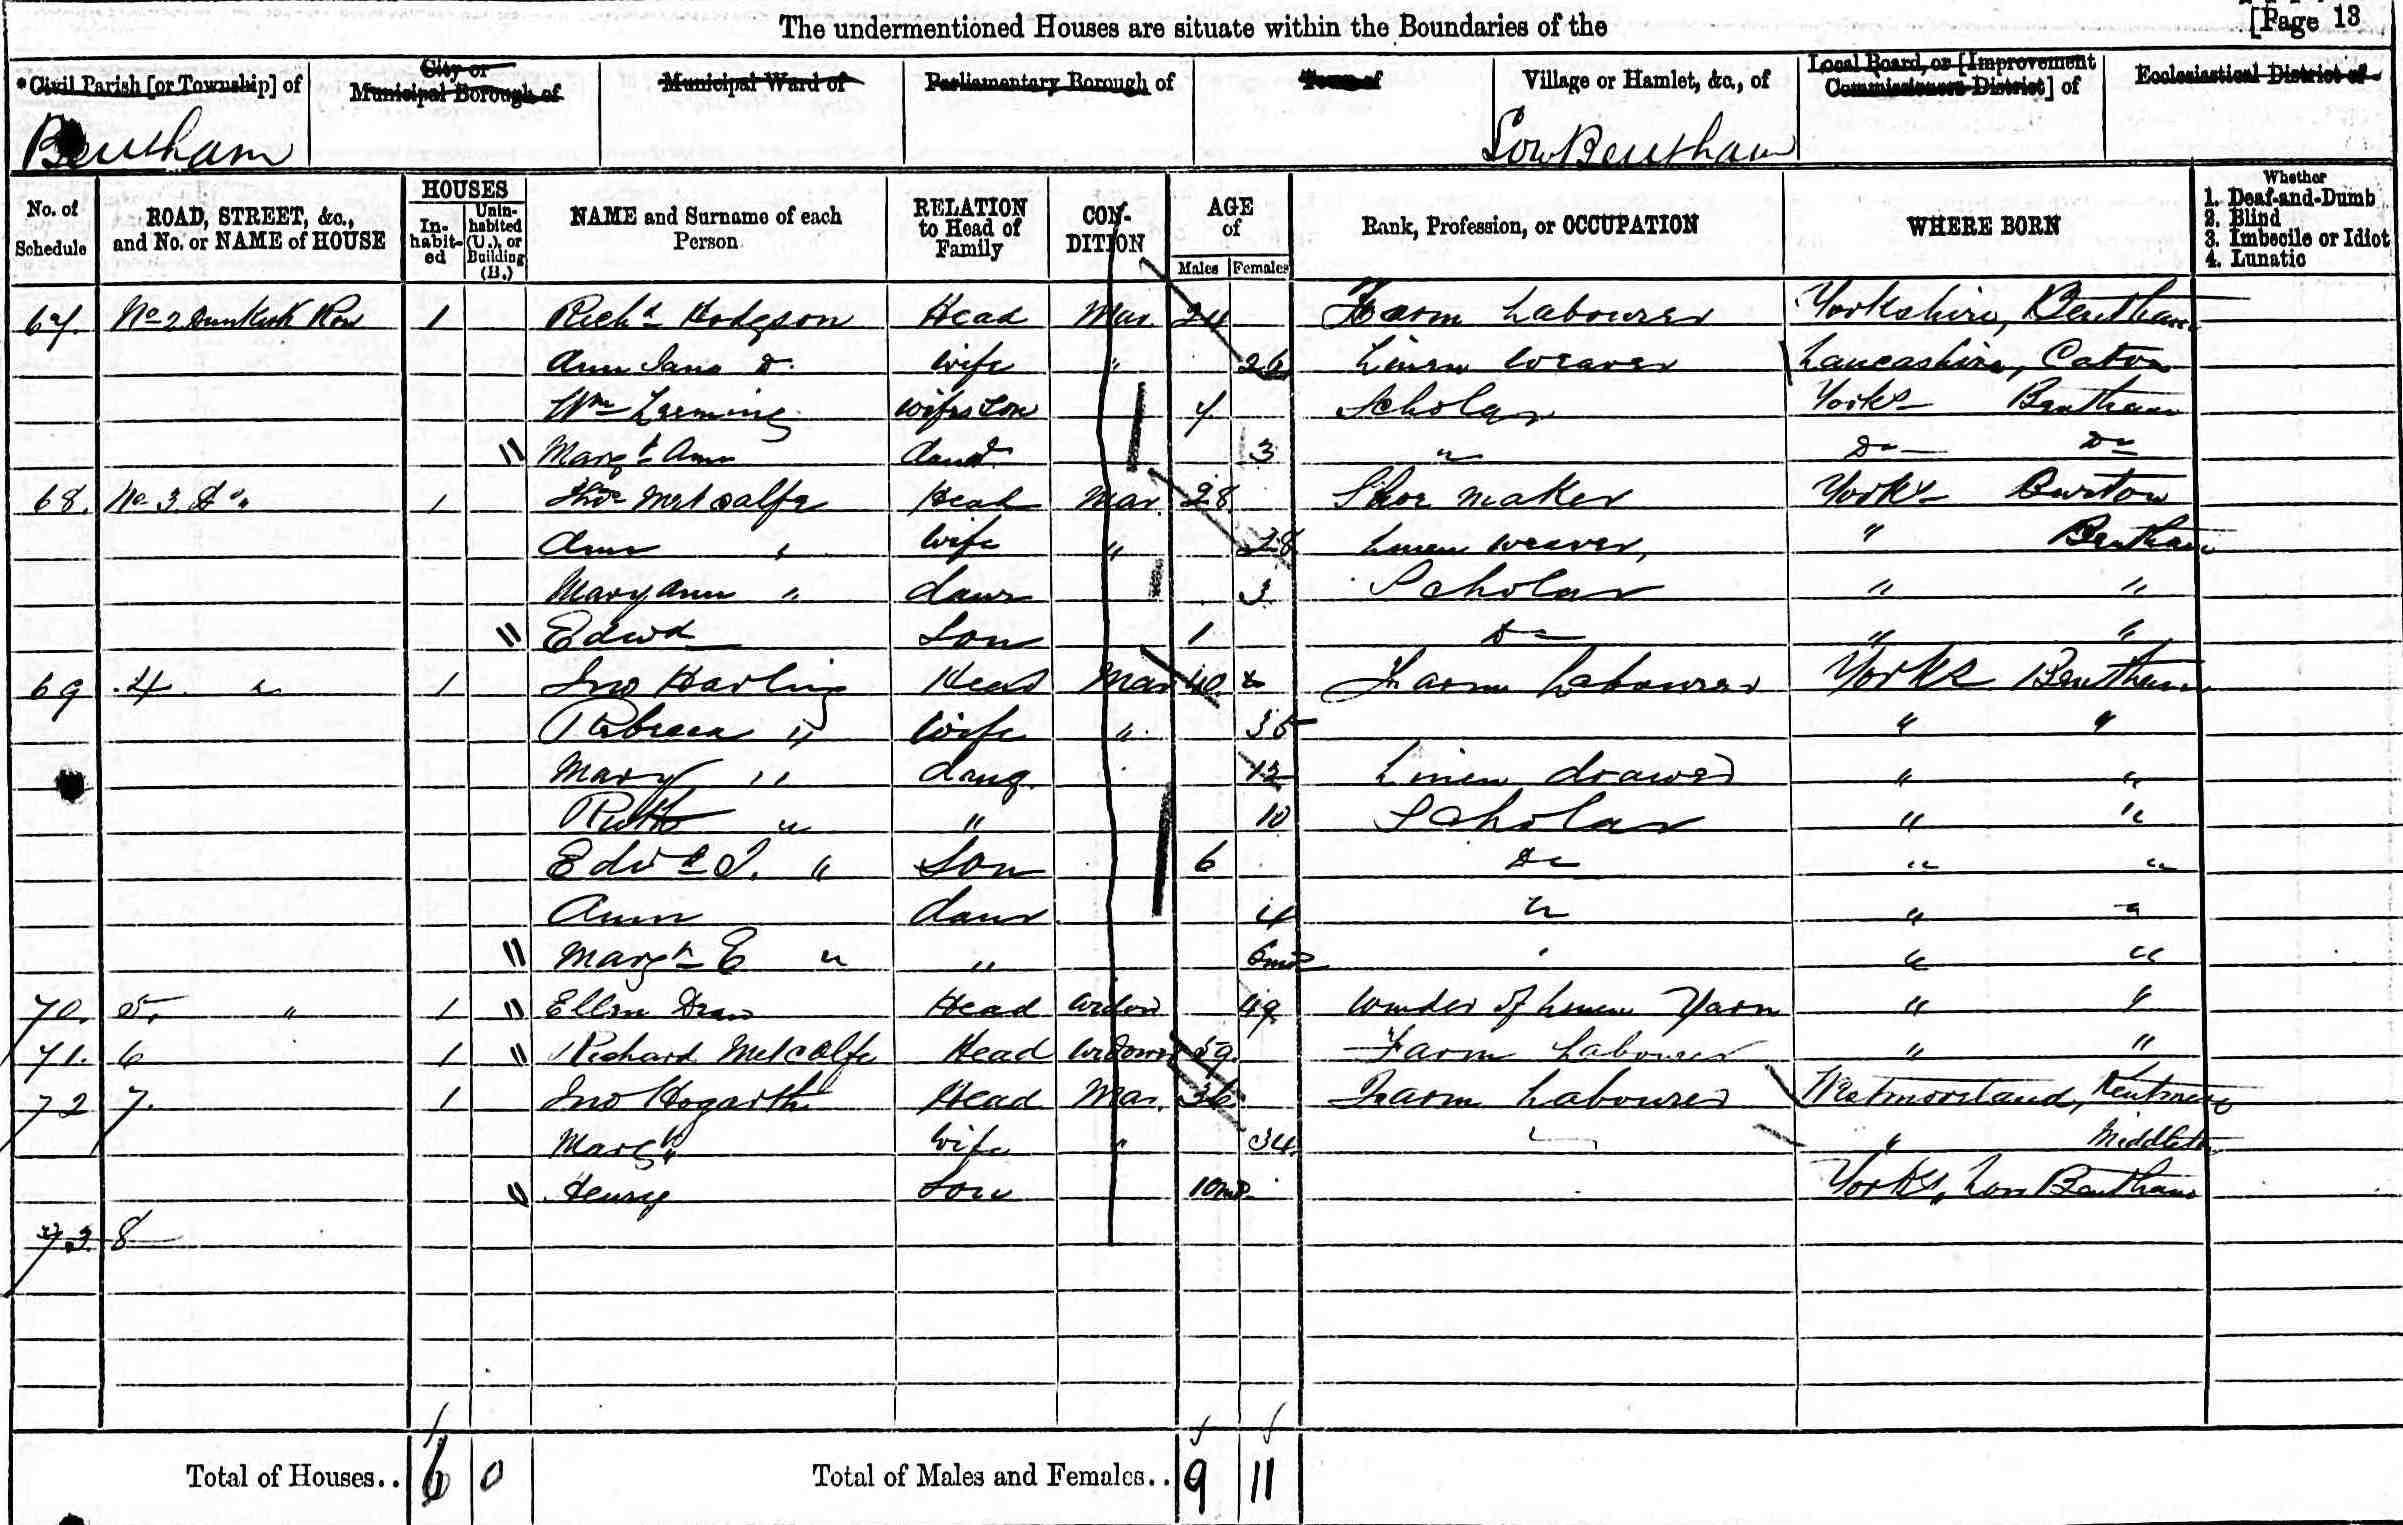 The undermentioned Houses are situate within the Boundaries of the [Page 13
*Civil Parish [or Township] of City or Municipal Borough of Municipal Ward of Parliamentary Borough of Town of Village or Hamlet, &c., of Local Board, or [Improvement Commissioners District] of Ecclesiastical District of
Bentham Low Bentham
No. of Schedule ROAD, STREET, &c., and No. or NAME of HOUSE HOUSES In-habit-ed Unin-habited (U.), or Building (B.) NAME and Surname of each Person RELATION to Head of Family CON-DITION AGE of Males Females Rank, Profession, or OCCUPATION WHERE BORN Whether 1. Deaf-and-Dumb 2. Blind 3. Imbecile or Idiot 4. Lunatic
67. No 2 Dunkirk Row 1 Richd Hodgson Head Mar. 24 Farm Labourer Yorkshire, Bentham
Ann Jane Do. Wife " 26 Linen Weaver Lancashire, Caton
Wm Leeming Wifes Son 7 Scholar Yorks Bentham
Margt Ann daur 3 " Do Do
68. No 3 Do " 1 Thos Metcalfe Head Mar. 28 Shoe maker Yorks Burton
Ann " Wife " 28 Linen Weaver, " Bentham
Mary Ann " daur 3 Scholar " "
Edwd Son 1 Do " "
69 4 " 1 Jno Harling Head Mar 40 Farm Labourer Yorks Bentham
Rebecca " Wife " 35 " "
Mary " daug. 12 Linen drawer " "
Ruth " " 10 Scholar " "
Edwd J. " Son 6 Do " "
Ann daur 4 " " "
Margt E " " 6mo " "
70. 5. " 1 Ellen Head Widow 49 Winder of Linen Yarn " "
71. 6 1 Richard Metcalfe Head Widowr 59. Farm Labourer " "
72 7. 1 Jno Hogarth Head Mar. 36 Farm Labourer Westmorland, Kentmere
Margt " Wife " 34. " Middleton
Henry Son 10mo. Yorks, Low Bentham
73 8
Total of Houses.. 6 0 Total of Males and Females.. 9 11